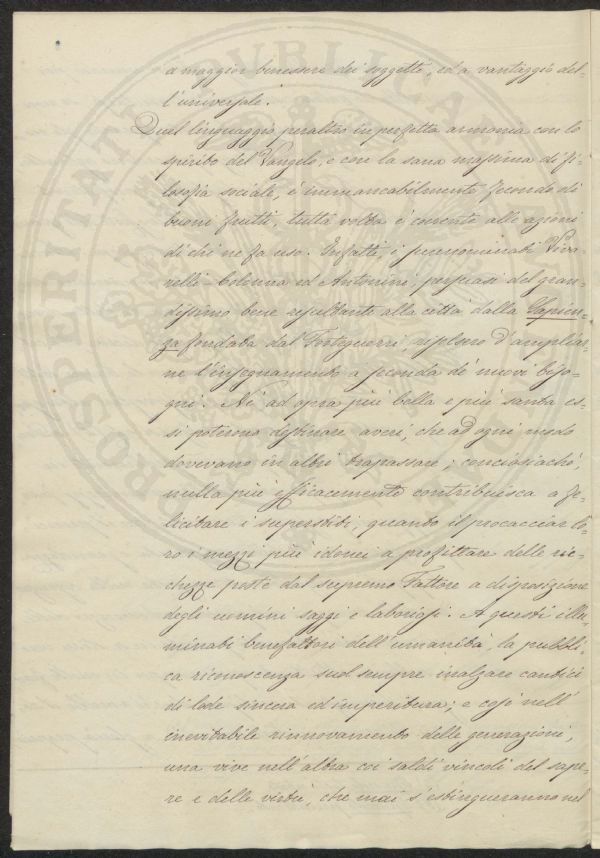 a maggior benessere dei soggetti, ed a vantaggio del-
l'universale.
Quel linguaggio peraltro in perfetta armonia con lo
spirito del Vangelo, e con la sana massima di fi-
losofia sociale, è immancabilmente fecondo di
buoni frutti, tutta volta è coerente alle azioni
di chi ne fa uso. Infatti, i prenominati Viva-
relli-Colonna ed Antonini, persuasi del gran-
dissimo bene resultante alla città dalla Sapien-
za fondata dal Forteguerri, risolsero d'ampliar-
ne l'insegnamento a seconda de' nuovi biso-
gni. Nè ad opra più bella e più santa es-
si poterono destinare averi, che ad ogni modo
dovevano in altri trapassare; conciosiachè,
nulla più efficacemente contribuisca a fe-
licitare i superstiti, quanto il procacciar lo-
ro i mezzi più idonei a profittare delle ric-
chezze poste dal supremo Fattore a disposizione
degli uomini saggi e laboriosi. A questi illu-
minati benefattori dell'umanità, la pubbli-
ca riconoscenza suol sempre inalzare cantici
di lode sincera ed imperitura; e così nell'
inevitabile rinnovamento delle generazioni,
una vive nell'altra coi saldi vincoli del sape-
re e delle virtù, che mai s'estingueranno nel
PROSPERITATI PUBLICAE